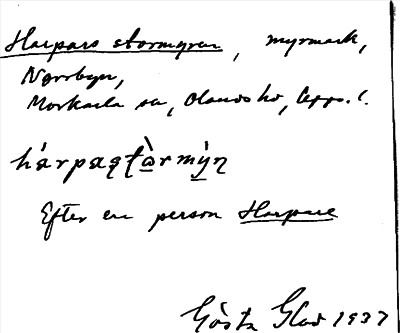 Harpars stormyran, myrmark,
Norrbyn,
Morkarla sn, Olands hd, Upps. l.
Efter en person Harpare
Gösta Glad 1937